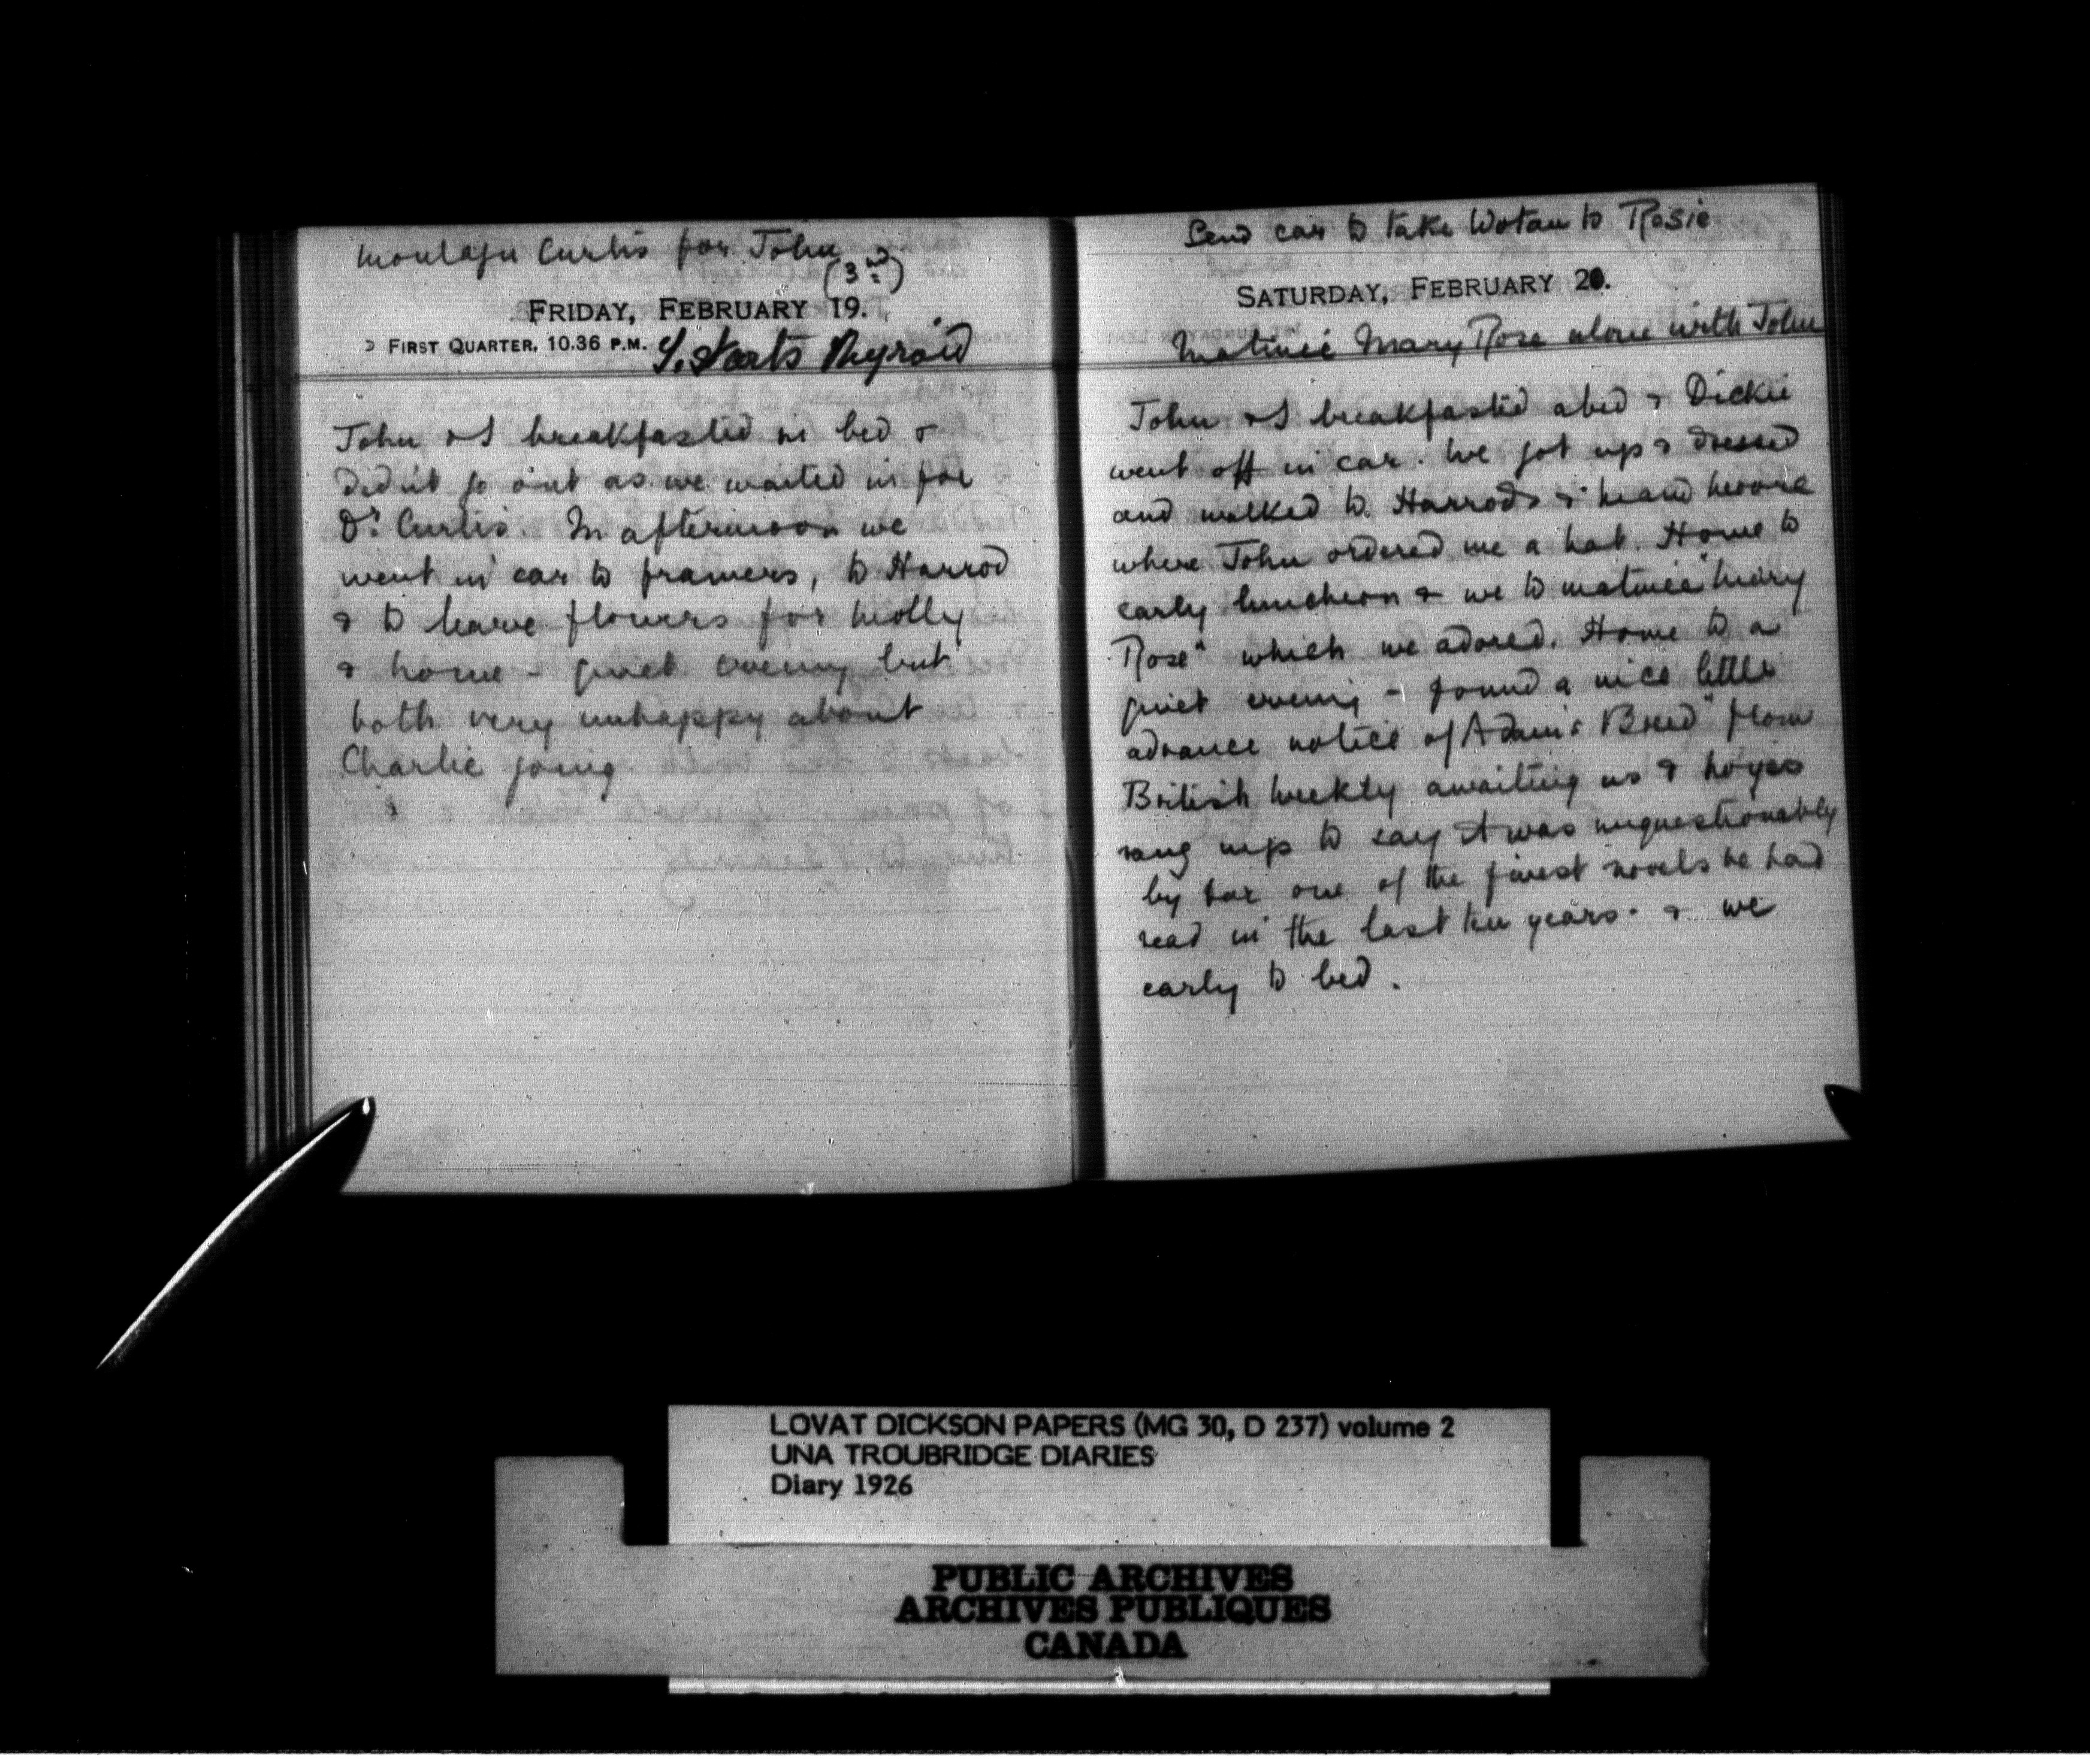 Curtis for John
(3rd)
FRIDAY, FEBRUARY 19.
☽ FIRST QUARTER, 10.36 P.M. I. starts Thyroid
John & I breakfasted in bed &
didn't go out as we waited in for
Dr. Curtis. In afternoon we
went in car to framers, to Harrod
& to leave flowers for Molly
& home - quiet evening but
both very unhappy about
Charlie going
Send car to take Wotan to Rosie
SATURDAY, FEBRUARY 20.
Matinée Mary Rose alone with John
John & I breakfasted abed & Dickie
went off in car. We got up & dressed
and walked to Harrods & Maud Moore
where John ordered me a hat. Home to
early luncheon & we to matinée "Mary
Rose" which we adored. Home to a
quiet evening - found a nice little
advance notice of "Adam's Breed" from
British Weekly awaiting us & Noyes
rang up to say it was unquestionably
by far one of the finest novels he had
read in the last ten years. & we
early to bed.
LOVAT DICKSON PAPERS (MG 30, D 237) volume 2
UNA TROUBRIDGE DIARIES
Diary 1926
PUBLIC ARCHIVES
ARCHIVES PUBLIQUES
CANADA